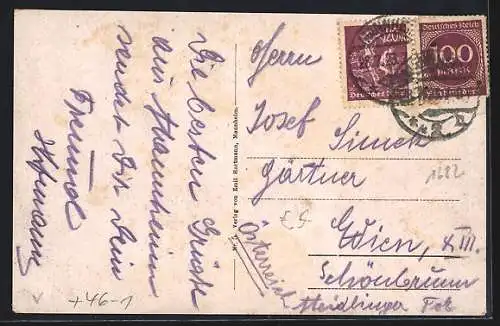 Die besten Grüße
aus Mannheim
sendet Dir Dein
Freund
Hofmann
N. 3. Verlag von Emil Hartmann, Mannheim.
Deutsches Reich
Deutsches Reich
100
MARK
Herrn
Josef Simek
Gärtner
1682
£9
Wien, XIII.
Österreich
Schönbrunn
Meidlinger
+46-1